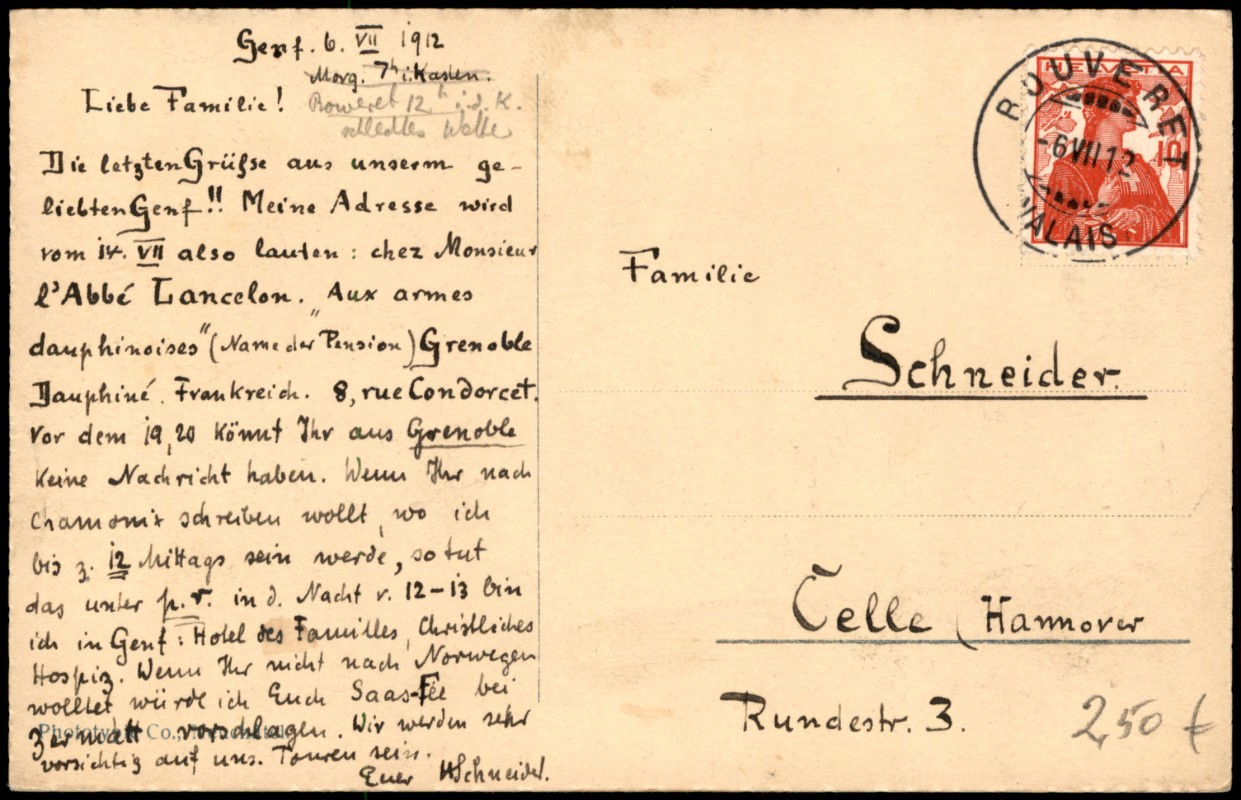 Genf. 6. VII 1912
Morg. 7h i. Kasten.
Liebe Familie!
Boweret 12h i. d. K.
schlechtes Wetter
Die letzten Grüsse aus unserm ge-
liebten Genf!! Meine Adresse wird
vom 14. VII also lauten: chez Monsieur
l'Abbé Lancelon. "Aux armes
dauphinoises" (Name der Pension) Grenoble
Dauphiné. Frankreich. 8, rue Condorcet.
Vor dem 19, 20 könnt Ihr aus Grenoble
keine Nachricht haben. Wenn Ihr nach
Chamonix schreiben wollt, wo ich
bis z. 12 Mittags sein werde, so tut
das unter p. r. in d. Nacht v. 12-13 bin
ich in Genf: Hotel des Familles, Christliches
Hospiz. Wenn Ihr nicht nach Norwegen
wolltet würde ich Euch Saas-Fée bei
Zermatt vorschlagen. Wir werden sehr
vorsichtig auf uns. Touren sein.
Euer HSchneider.
Phototypie Co.,
HELVETIA
10
BOUVERET
-6 VII 12
VALAIS
Familie
Schneider.
Celle (Hannover
Rundestr. 3.
2,50 €